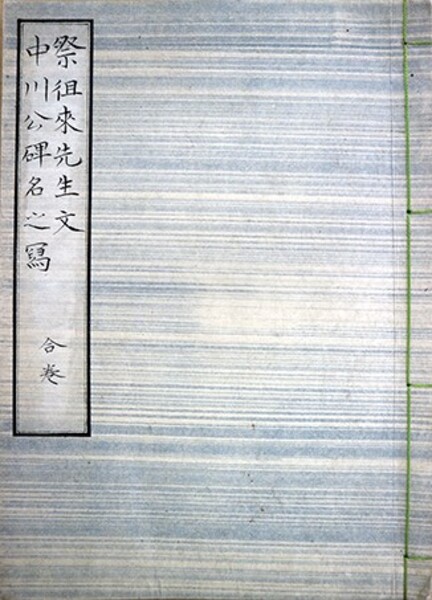 祭徂來先生文
中川公碑名之寫
合巻